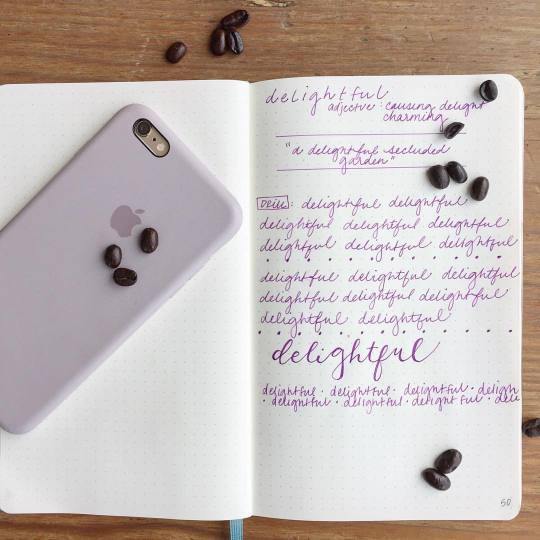 delightful
adjective: causing delight
charming
"a delightful secluded
garden"
DRILL: delightful delightful
delightful delightful delightful
delightful delightful delightful
delightful delightful delightful
delightful delightful delightful
delightful delightful
delightful
delightful · delightful · delightful · deligh
· delightful · delightful · delightful · deli
50